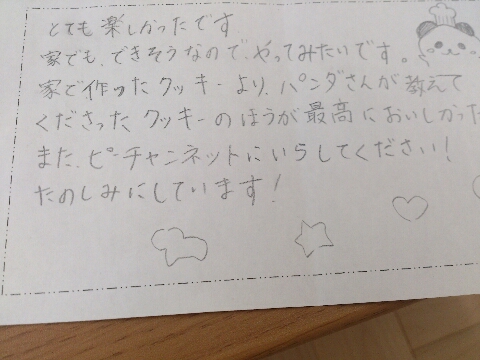 とても楽しかったです
家でも、できそうなので、やってみたいです。
家で作ったクッキーより、パンダさんが教えて
くださったクッキーのほうが最高においしかった
また、ピーチャンネットにいらしてください!
たのしみにしています!